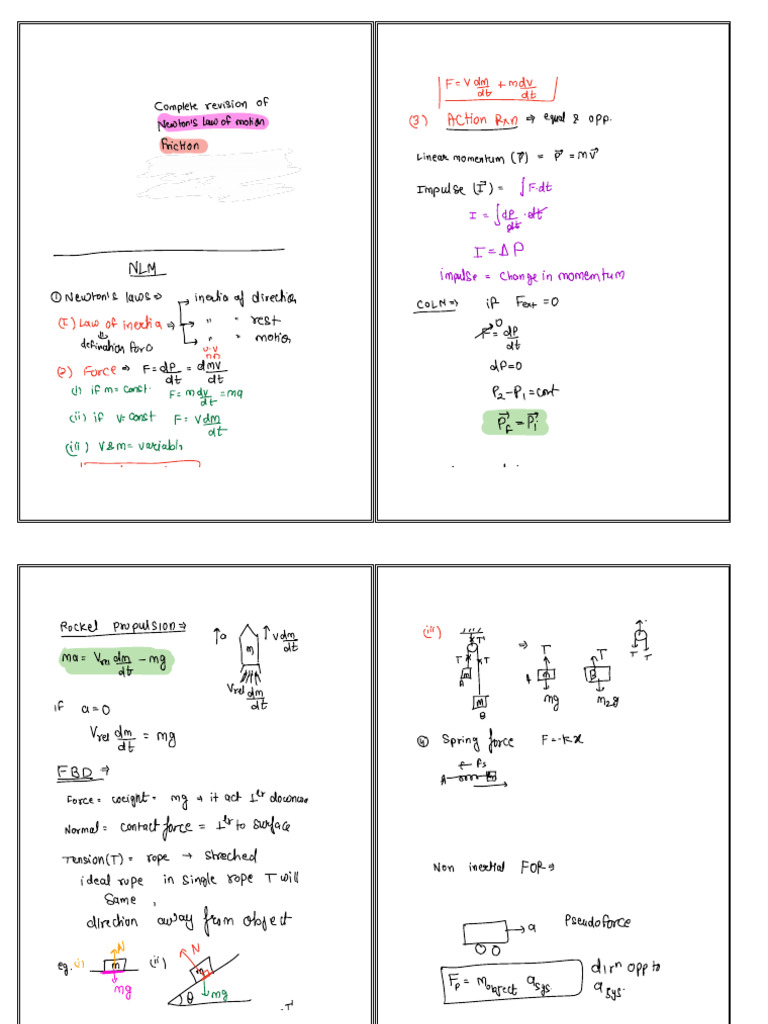 Complete revision of
Newton's Law of motion
Friction
NLM
① Newton's laws ⇒ inertia of direction
(I) Law of inertia ⇒ " " rest
defination for 0 " " motion
(2) Force ⇒ F = dP/dt = dmv/dt
(i) if m = const. F = m dv/dt = ma
(ii) if v = const F = V dm/dt
(iii) V & m = variable
F = V dm/dt + m dv/dt
(3) Action Rxn ⇒ equal & opp.
Linear momentum (P⃗) = P⃗ = mv⃗
Impulse (I⃗) = ∫F·dt
I = ∫ dP/dt · dt
I = ΔP
impulse = change in momentum
COLM ⇒ if Fext = 0
F = dP/dt
0
dP = 0
P₂ - P₁ = cont
P⃗F = P⃗i
Rocket propulsion ⇒
a
m
V dm/dt
ma = Vrel dm/dt - mg
Vrel dm/dt
if a = 0
Vrel dm/dt = mg
FBD ⇒
Force = weight = mg → it act ⊥ʳ downward
Normal = contact force = ⊥ʳ to surface
Tension (T) = rope → streched
ideal rope in single rope T will
same,
direction away from object
eg. i) N m mg
(ii) N m mg θ
(iii) T' T T m A m B
⇒ T m mg
T B m₂g
T T
④ Spring force F = -kx
Fs
A m
Non inertial FOR ⇒
a
Pseudoforce
Fp = mobject asys
dirⁿ opp to
asys.